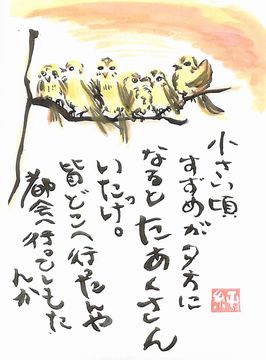 小さい頃
すずめが夕方に
なると たあくさん
いたっけ。
皆どこへ行ったんや
都会へ行ってしもた
んか